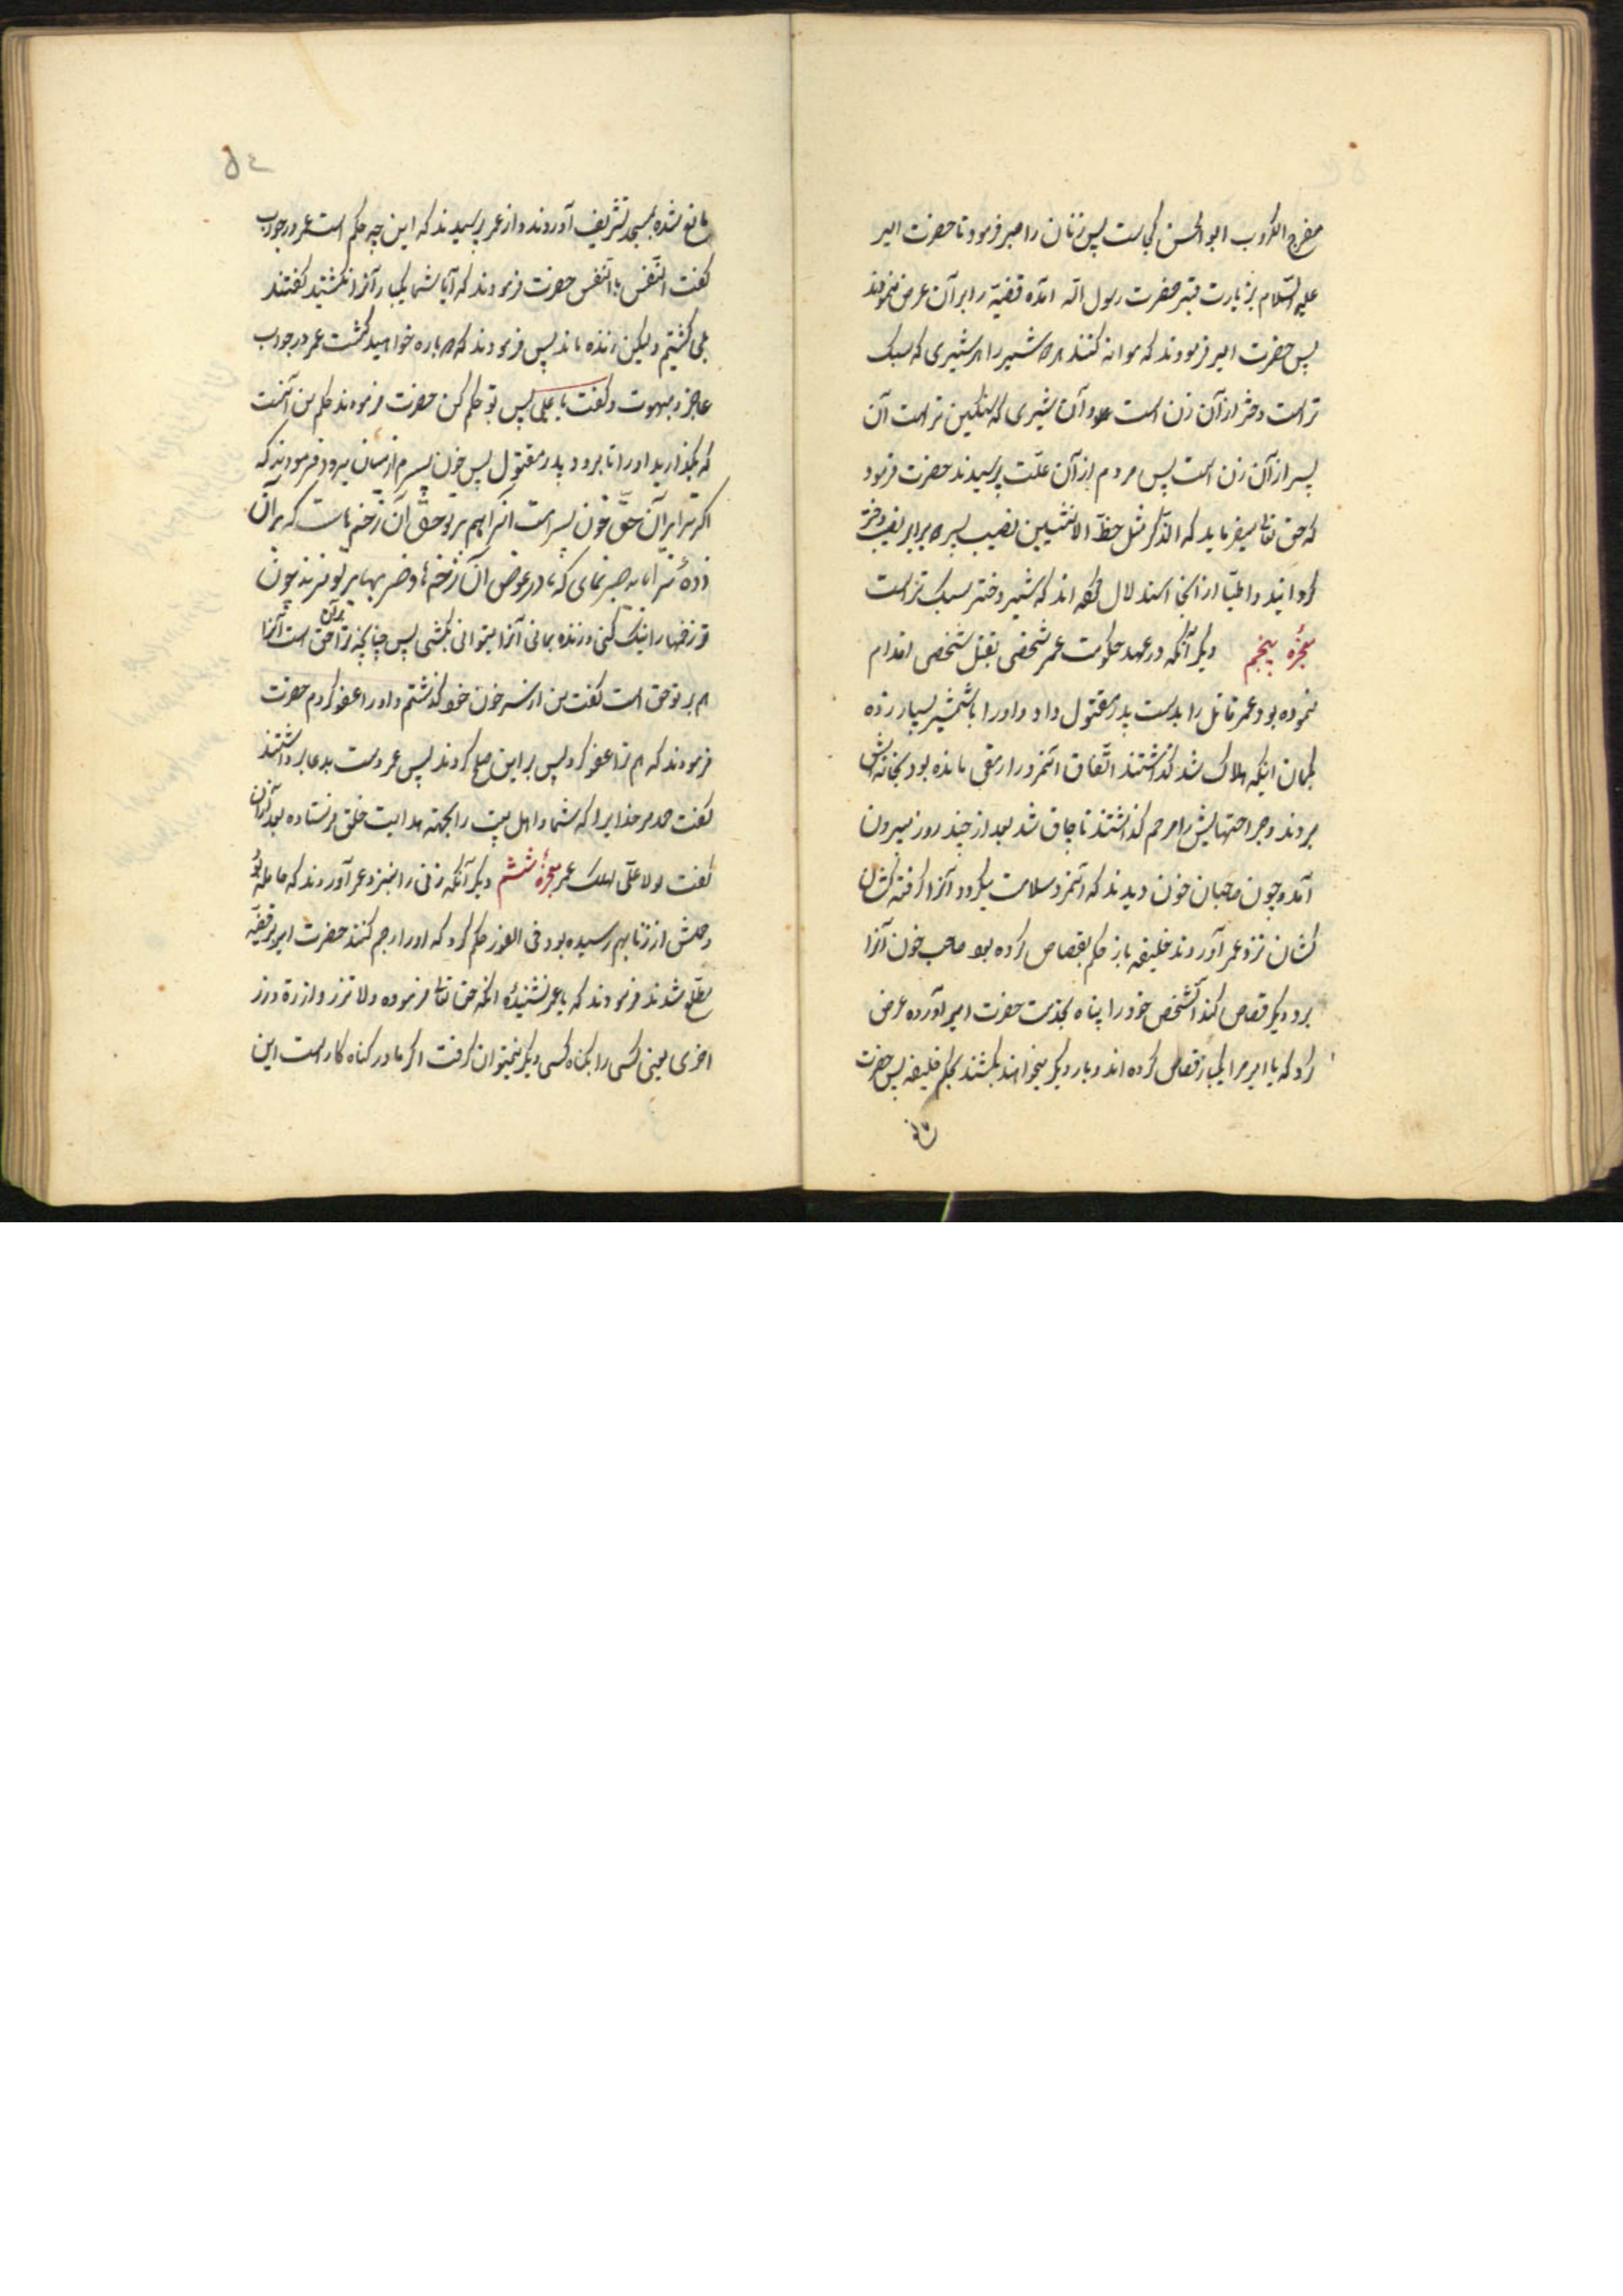 مفرج الکروب ابو الحسن کجاست پس زنان را صبر فرمود تا حضرت امیر
علیه السّلام بزیارت قبر حضرت رسول الله آمده قضیّه را برآن عرض نمودند
پس حضرت امیر فرمودند که موازنه کنند هر دو شیر را هر شیری که سبک
تر است دختر از آن زن است و آن شیری که سنکین تر است آن
پسر از آن زن است پس مردم از آن علّت پرسیدند حضرت فرمود
که حق تعالی میفرماید که الذّکر مثل حظّ الانثیین نصیب پسر دو برابر نصیب دختر
کردانید و اطبّا از اینجا استدلال کرده اند که شیر دختر سبک تر است
معجزهٔ پنجم دیکر آنکه در عهد حکومت عمر شخصی بقتل شخصی اقدام
نموده بود عمر قاتل را بدست پدر مقتول داد و او را با شمشیر بسیار زده
بکمان اینکه هلاک شد کذاشتند اتّفاق آنمرد را رمقی مانده بود بخانه اش
بردند و جراحتهایش را مرحم کذاشتند تا چاق شد بعد از چند روز بیرون
آمد و چون صاحبان خون دیدند که آنمرد سلامت میکردد آنرا کرفته کشان
کشان نزد عمر آوردند خلیفه باز حکم بقصاص کرده بود صاحب خون آنرا
برد دیکر قصاص کند آنشخص خود را پناه بخدمت حضرت امیر آورده عرض
کرد که یا امیر مرا یکبار قصاص کرده اند و بار دیکر میخواهند بکشند بحکم خلیفه پس حضرت
مانع
٥٤
مانع شده بمسجد تشریف آوردند و از عمر پرسیدند که این چه حکم است عمر در جواب
کفت النّفس بالنّفس حضرت فرمودند که آیا شما یکبار آنرا نکشتید کفتند
بلی کشتیم ولیکن زنده ماند پس فرمودند که دو باره خواهید کشت عمر در جواب
عاجز و مبهوت و کفت یا علی پس تو حکم کن حضرت فرمودند حکم من آنست
که بکذارید او را تا برود پدر مقتول پس خون پسرم از میان میرود فرمودند که
اکر ترا بر آن حقّ خون پسر است آنرا هم بر تو حقّ آن زخمهاست که بر آن
زدهٔ ترا باید صبر نمای که تا در عوض آن زخمها و ضربها بر تو بزند چون
تو زخمها را نیک کنی و زنده بمانی آنرا میتوانی بکشی پس چنانچه ترا بر آن حق است آنرا
هم بر تو حق است کفت من از سر خون خود کذشتم و او را عفو کردم حضرت
فرمودند که هم ترا عفو کرد پس بر این صلح کردند پس عمر دست بدعا برداشتند
کفت حمد مر خدایرا که شما و اهل بیت را بجهته هدایت خلق فرستاده بعد از آن
کفت لولا علیّ لهلک عمر معجزهٔ ششم دیکر آنکه زنی را بنزد عمر آوردند که حامله بود
و حملش از زنا بهم رسیده بود فی الفور حکم کرد که او را رجم کنند حضرت امیر بر قضیّه
مطلع شدند فرمودند که یا عمر نشنیدهٔ آنکه حق تعالی فرموده ولا تزر وازرة وزر
اخری یعنی کسی را بکناه کسی دیکر نمیتوان کرفت اکر مادر کناه کار است این